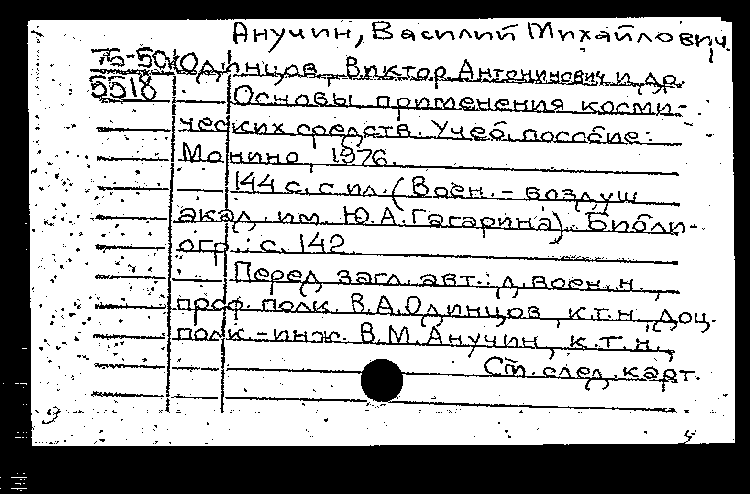 Анучин, Василий Михайлович
75-50 Одинцов, Виктор Антонинович и др.
5518 Основы применения косми-
ческих средств. Учеб. пособие.
Монино, 1976.
144 с. с ил. (Воен.-воздуш
акад. им. Ю.А.Гагарина). Библи-
огр.: с. 142
Перед загл. авт.: д. воен. н.,
проф. полк. В.А.Одинцов, к.т.н., доц.
полк.-инж. В.М.Анучин, к.т.н.,
См. след. карт.